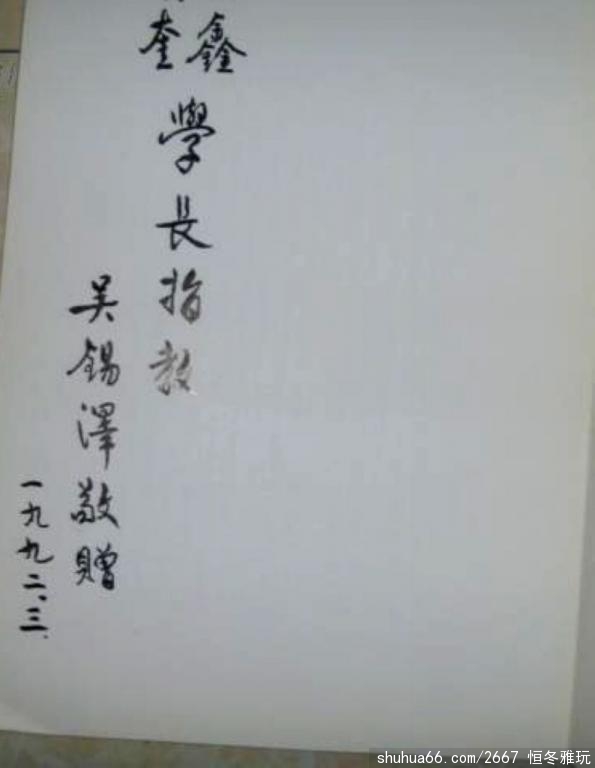 奎鑫
學長指教
吳錫澤敬贈
一九九二、三、
shuhua66.com/2667 恒冬雅玩